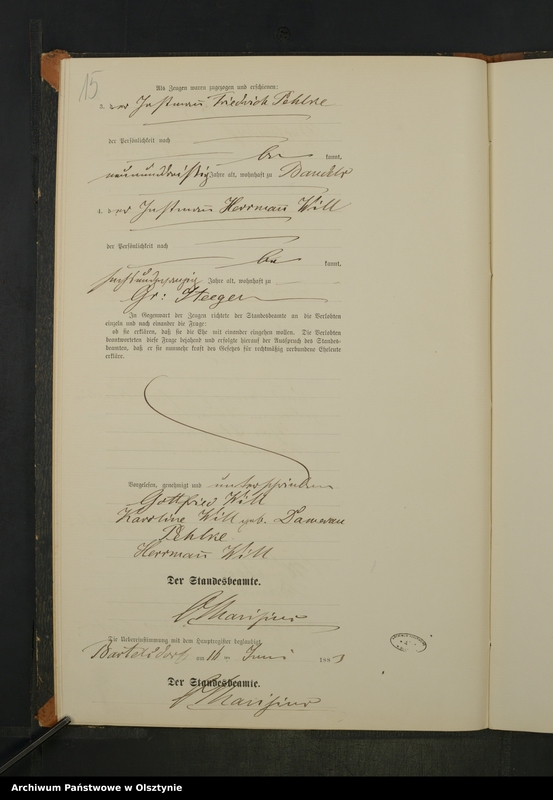 15
Als Zeugen waren zugezogen und erschienen:
3. der Instmann Friedrich Pehlke
der Persönlichkeit nach
be kannt,
neununddreißig Jahre alt, wohnhaft zu Bandels
4. der Instmann Herrmann Will
der Persönlichkeit nach
be kannt,
sechsundzwanzig Jahre alt, wohnhaft zu
Gr: Steegen
In Gegenwart der Zeugen richtete der Standesbeamte an die Verlobten
einzeln und nach einander die Frage:
ob sie erklären, daß sie die Ehe mit einander eingehen wollen. Die Verlobten
beantworteten diese Frage bejahend und erfolgte hierauf der Ausspruch des Standes-
beamten, daß er sie nunmehr kraft des Gesetzes für rechtmäßig verbundene Eheleute
erkläre.
Vorgelesen, genehmigt und unterschrieben
Gottfried Will
Karoline Will geb. Damerau
Pehlke
Herrmann Will
Der Standesbeamte.
Die Uebereinstimmung mit dem Hauptregister beglaubigt
Bartelsdorf am 16 ten Juni 188
Der Standesbeamte.
Archiwum Państwowe w Olsztynie